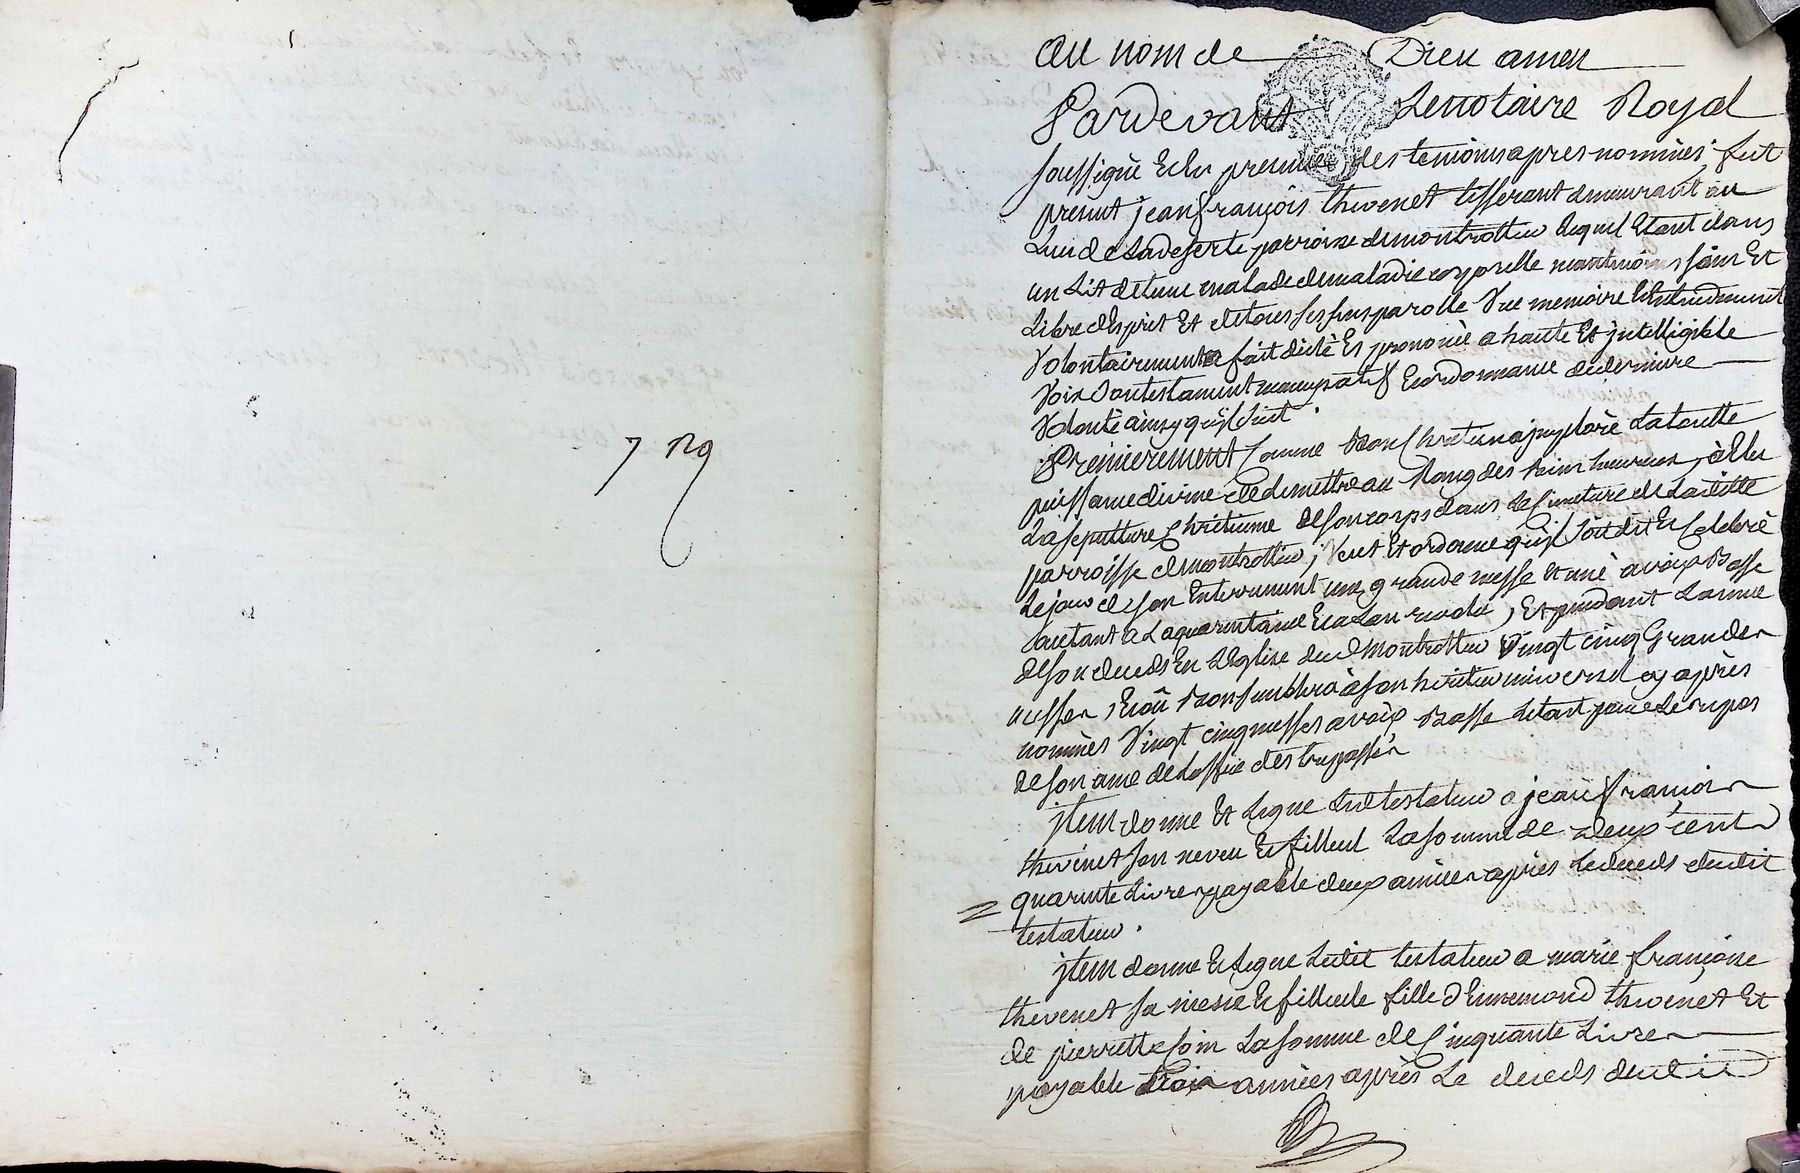 7 Rg
au nom de Dieu amen
Pardevant Le notaire Royal
soussigné Et En presence des temoins apres nommés, fut
present jean françois thevenet tisserant demeurant au
Lieu de La deserte parroisse de montrottier lequel Etant dans
un Lit detenu malade de maladie corporelle neantmoins sain Et
Libre d'Esprit Et de tous ses sens parolle Vue memoire Et Entendement
Volontairement a fait dicté Et prononcé a haute Et jntelligible
Voix Son testament nuncupatif Et ordonnance de derniere
Volonté ainsy qu'il suit.
Premierement Comme Bon Chretien a jmploré La toutte
puissance divine de le mettre au Rang des Bien heureux, à Elu
La sepulture Chretienne de son corps dans Le Cimetiere de Laditte
parroisse de montrottier, Veut Et ordonne qu'il soit dit Et Celebré
Le jour de son Enterrement une grande messe Et une à voix Basse
autant a La quarantaine Et a L'an revolu, Et pendant L'année
de son deceds En L'Eglise dud Montrottier Vingt cinq Grandes
messes, Et où Bon semblera à son heritier universel cy après
nommés Vingt cinq messes a voix Basse Le tout pour Le repos
de son ame de Celles des trepassés
jtem donne Et Legue Led testateur a jean françois
thevenet son neveu Et filleul La somme de deux cents
quarente Livres payable deux années après Le deceds dudit
testateur.
jtem donne Et Legue Ledit testateur a marie françoise
thevenet sa niesse Et filleule fille d'Ennemond thevenet Et
de pierrette Coin La somme de Cinquante Livres
payable trois années après Le deceds dudit